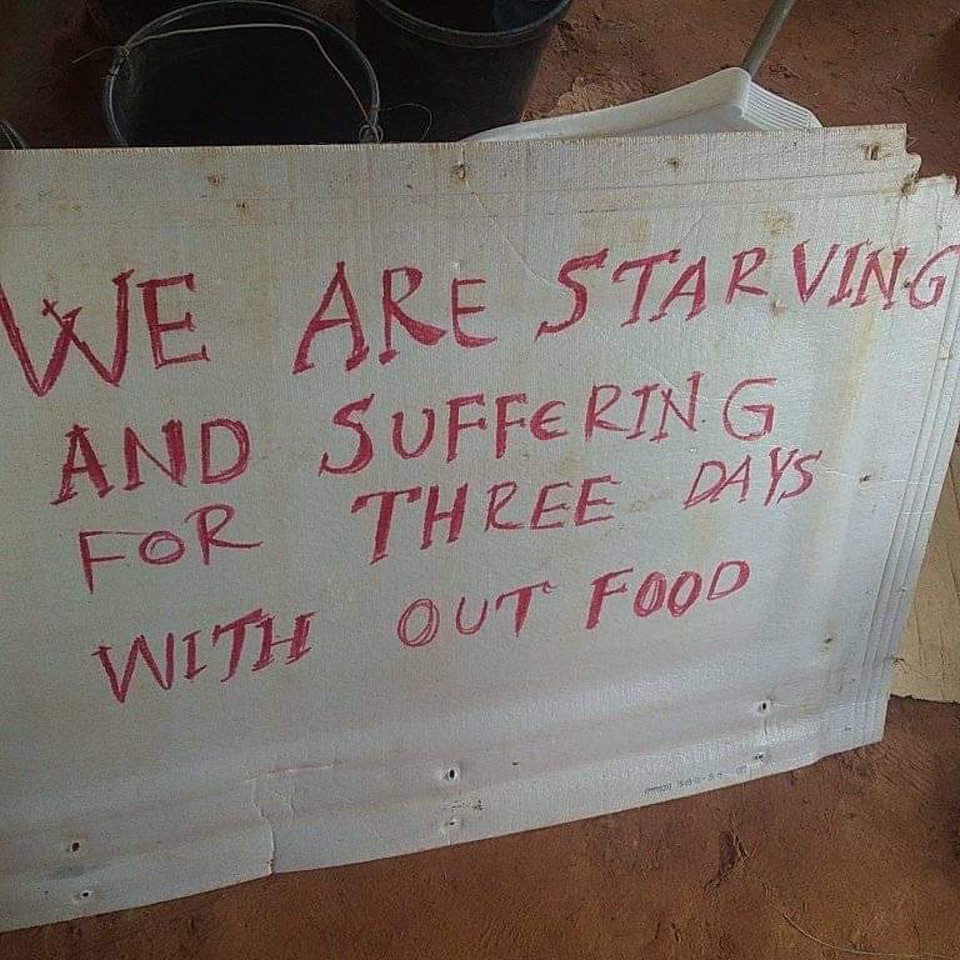 WE ARE STARVING
AND SUFFERING
FOR THREE DAYS
WITH OUT FOOD